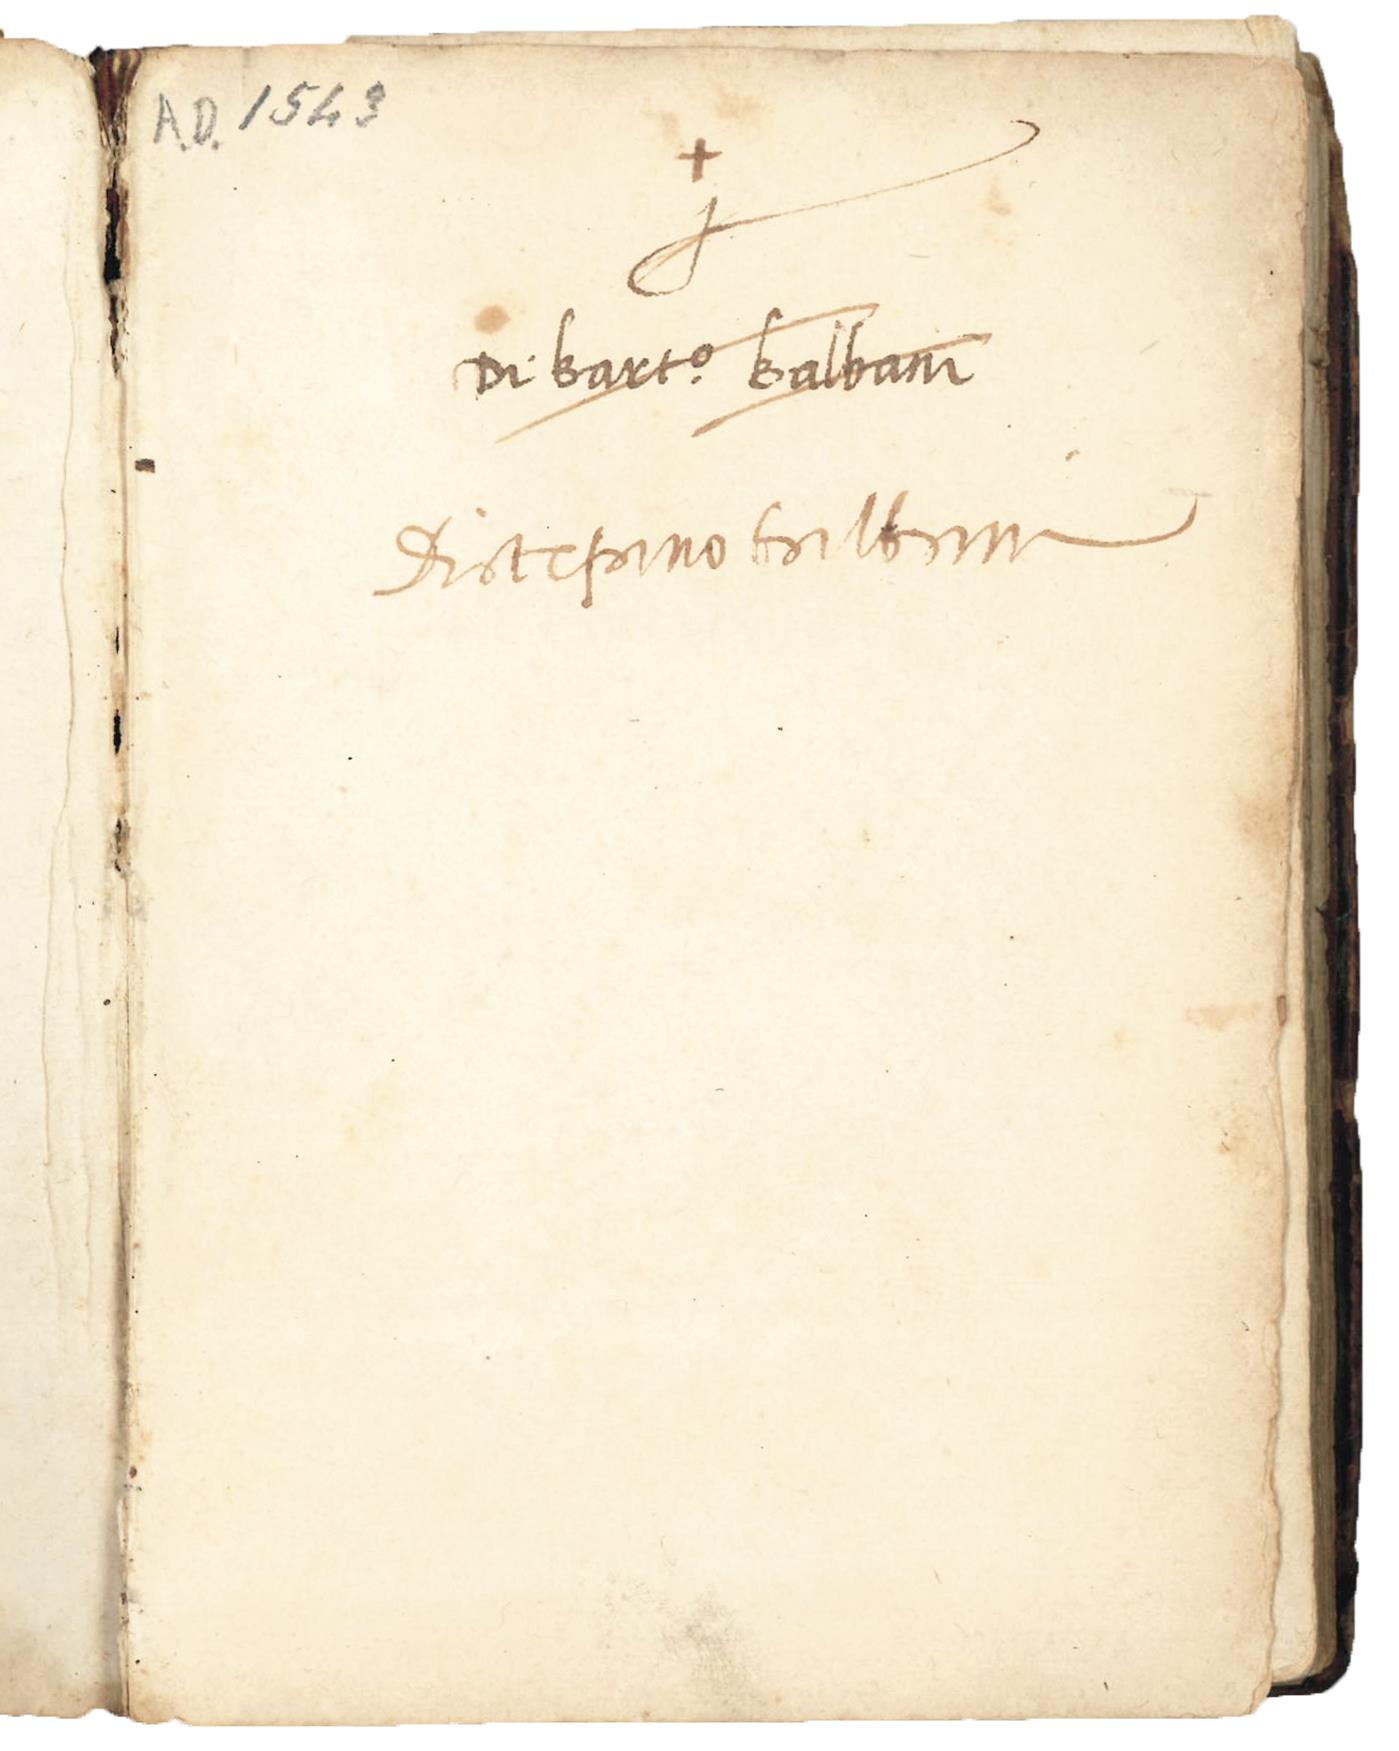 A.D. 1543
+
Di bart.o balbani
Di stefano balbani